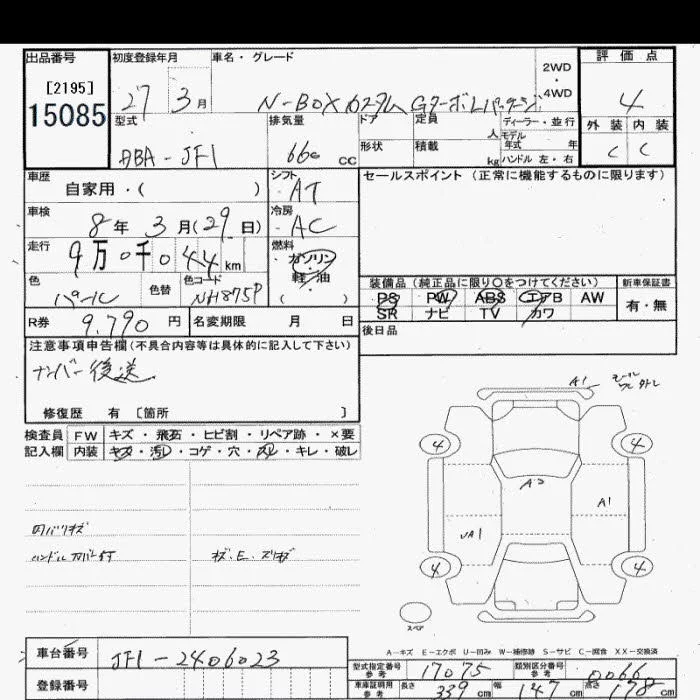 出品番号 初度登録年月 車名・グレード 評価点
[2195]
15085
27 3月 N-BOXカスタム GターボLパッケージ 2WD・4WD 4
型式 排気量 ドア 定員 人 ディーラー・並行 外装 内装
モデル年式 年
ABA-JF1 660 cc 形状 積載 kg ハンドル 左・右 C C
車歴 自家用・( ) シフト AT セールスポイント(正常に機能するものに限ります)
車検 8年 3月(29日) 冷房 AC
走行 9万0千044km 燃料 ガソリン・軽油 ( )
色 パール 色替 色コード NH875P
装備品(純正品に限り○をつけてください) 新車保証書
PS PW ABS エアB AW 有・無
SR ナビ TV カワ
R券 9,790円 名変期限 月 日 後日品
注意事項申告欄(不具合内容等は具体的に記入して下さい)
ナンバー後送
修復歴 有 [箇所 ]
検査員 FW キズ・飛石・ヒビ割・リペア跡・×要
記入欄 内装 キズ・汚れ・コゲ・穴・スレ・キレ・破レ
A1
4 4
A1
UA1
4 4
スペア
ハンドルカバー付
A-キズ E-エクボ U-凹み W-補修跡 S-サビ C-腐食 XX-交換済
車台番号 JF1-2406023
型式指定番号 参考 17075 類別区分番号 参考 0066
登録番号 車庫証明用 参考 長さ 339cm 幅 147cm 高さ 178cm